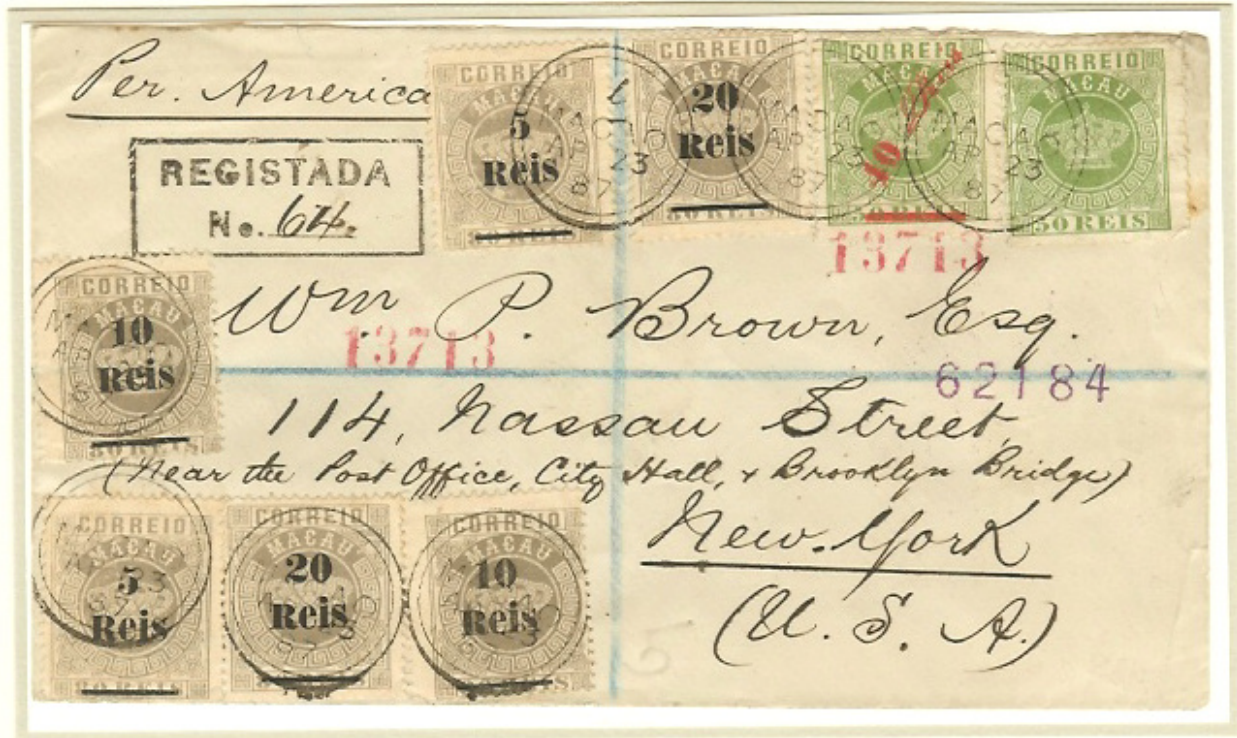 Per. America
REGISTADA
No. 64.
CORREIO
MACAU
5
Reis
80 REIS
CORREIO
MACAU
20
Reis
80 REIS
CORREIO
MACAU
10
50 REIS
CORREIO
MACAU
50 REIS
MACAO
AP 23
87
13713
CORREIO
MACAU
10
Reis
80 REIS
Wm P. Brown, Esq.
13713
62184
114, Nassau Street,
(Near the Post Office, City Hall, & Brooklyn Bridge)
New-York
(U. S. A.)
CORREIO
MACAU
5
Reis
80 REIS
CORREIO
MACAU
20
Reis
CORREIO
MACAU
10
Reis